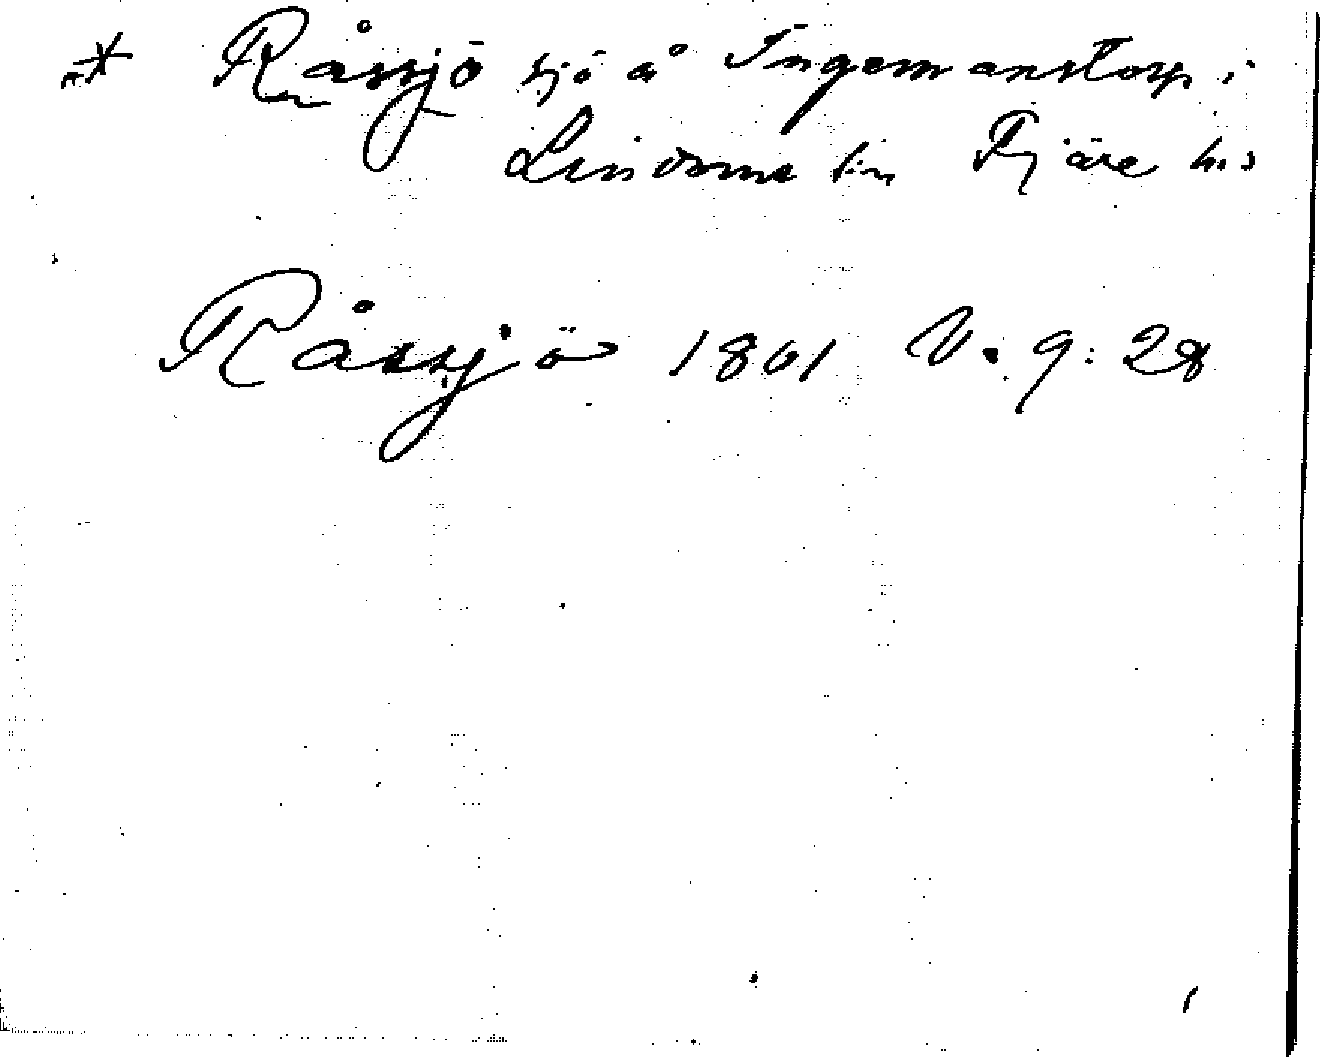 * Råssjö sjö å Ingemanstorp i
Lindome sn Fjäre hd
Råssjö 1801 V. 9: 28